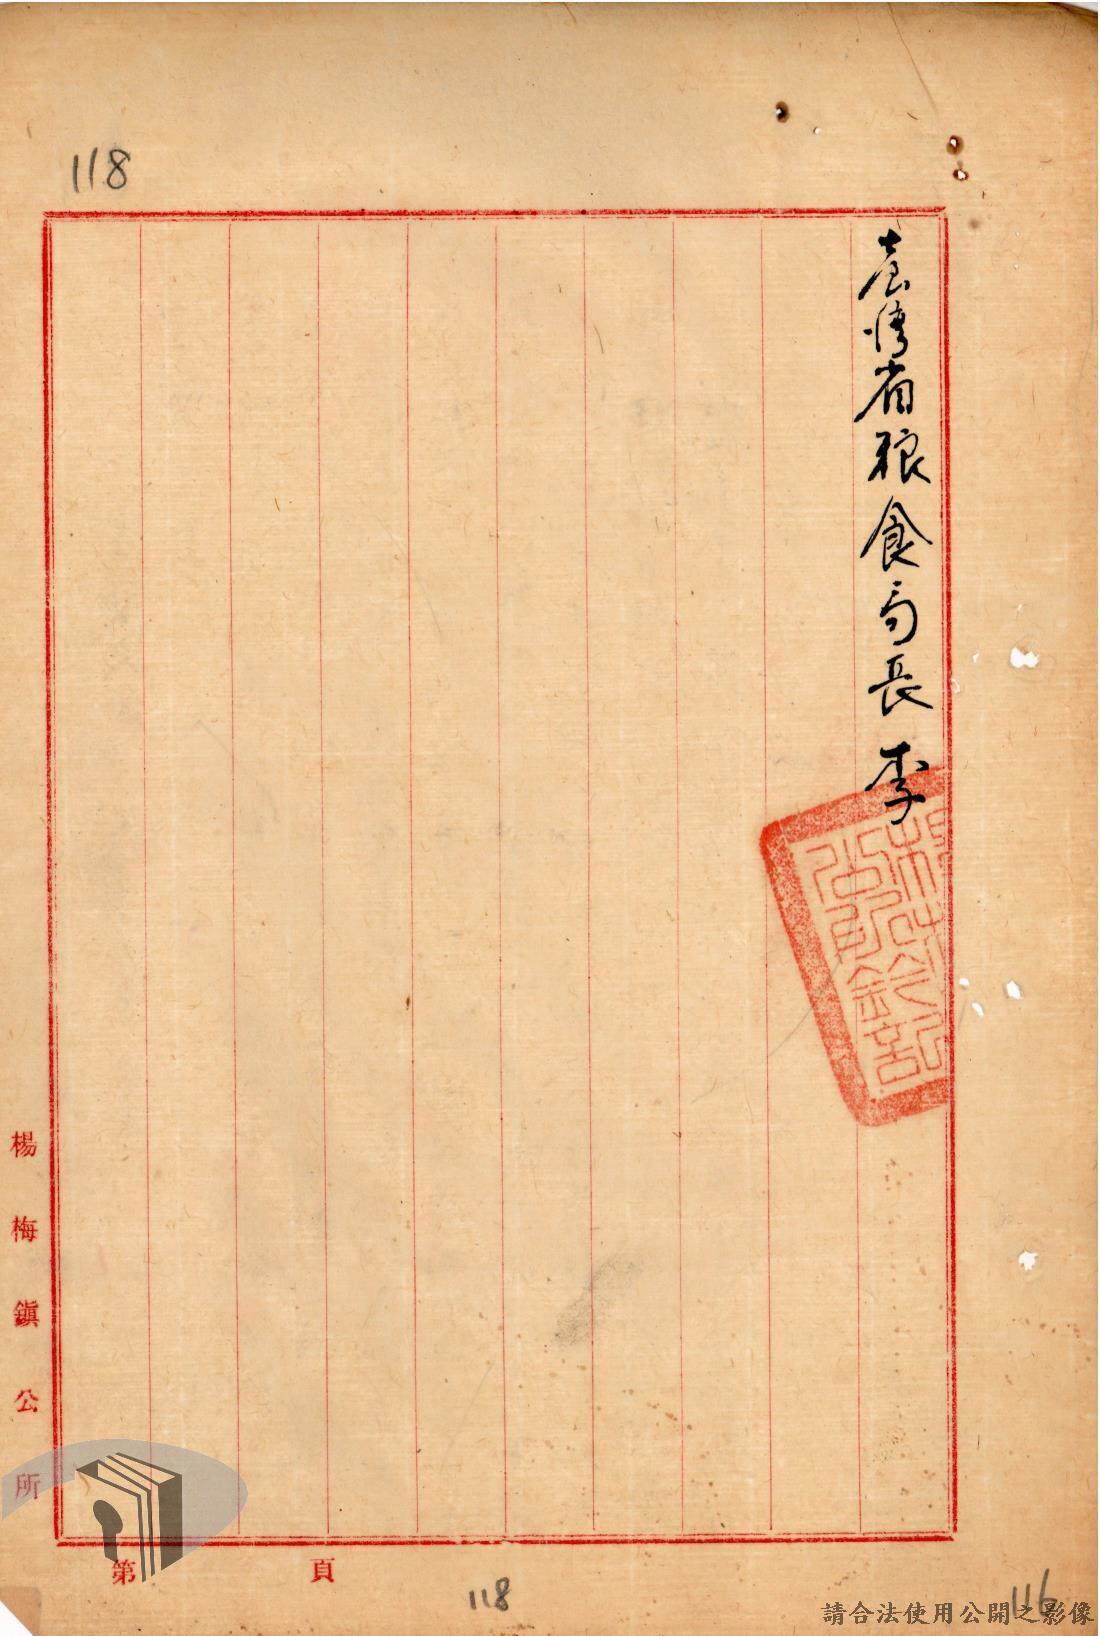 118
臺灣省粮食局長李
楊梅鎮公所
第 頁
118
116
請合法使用公開之影像